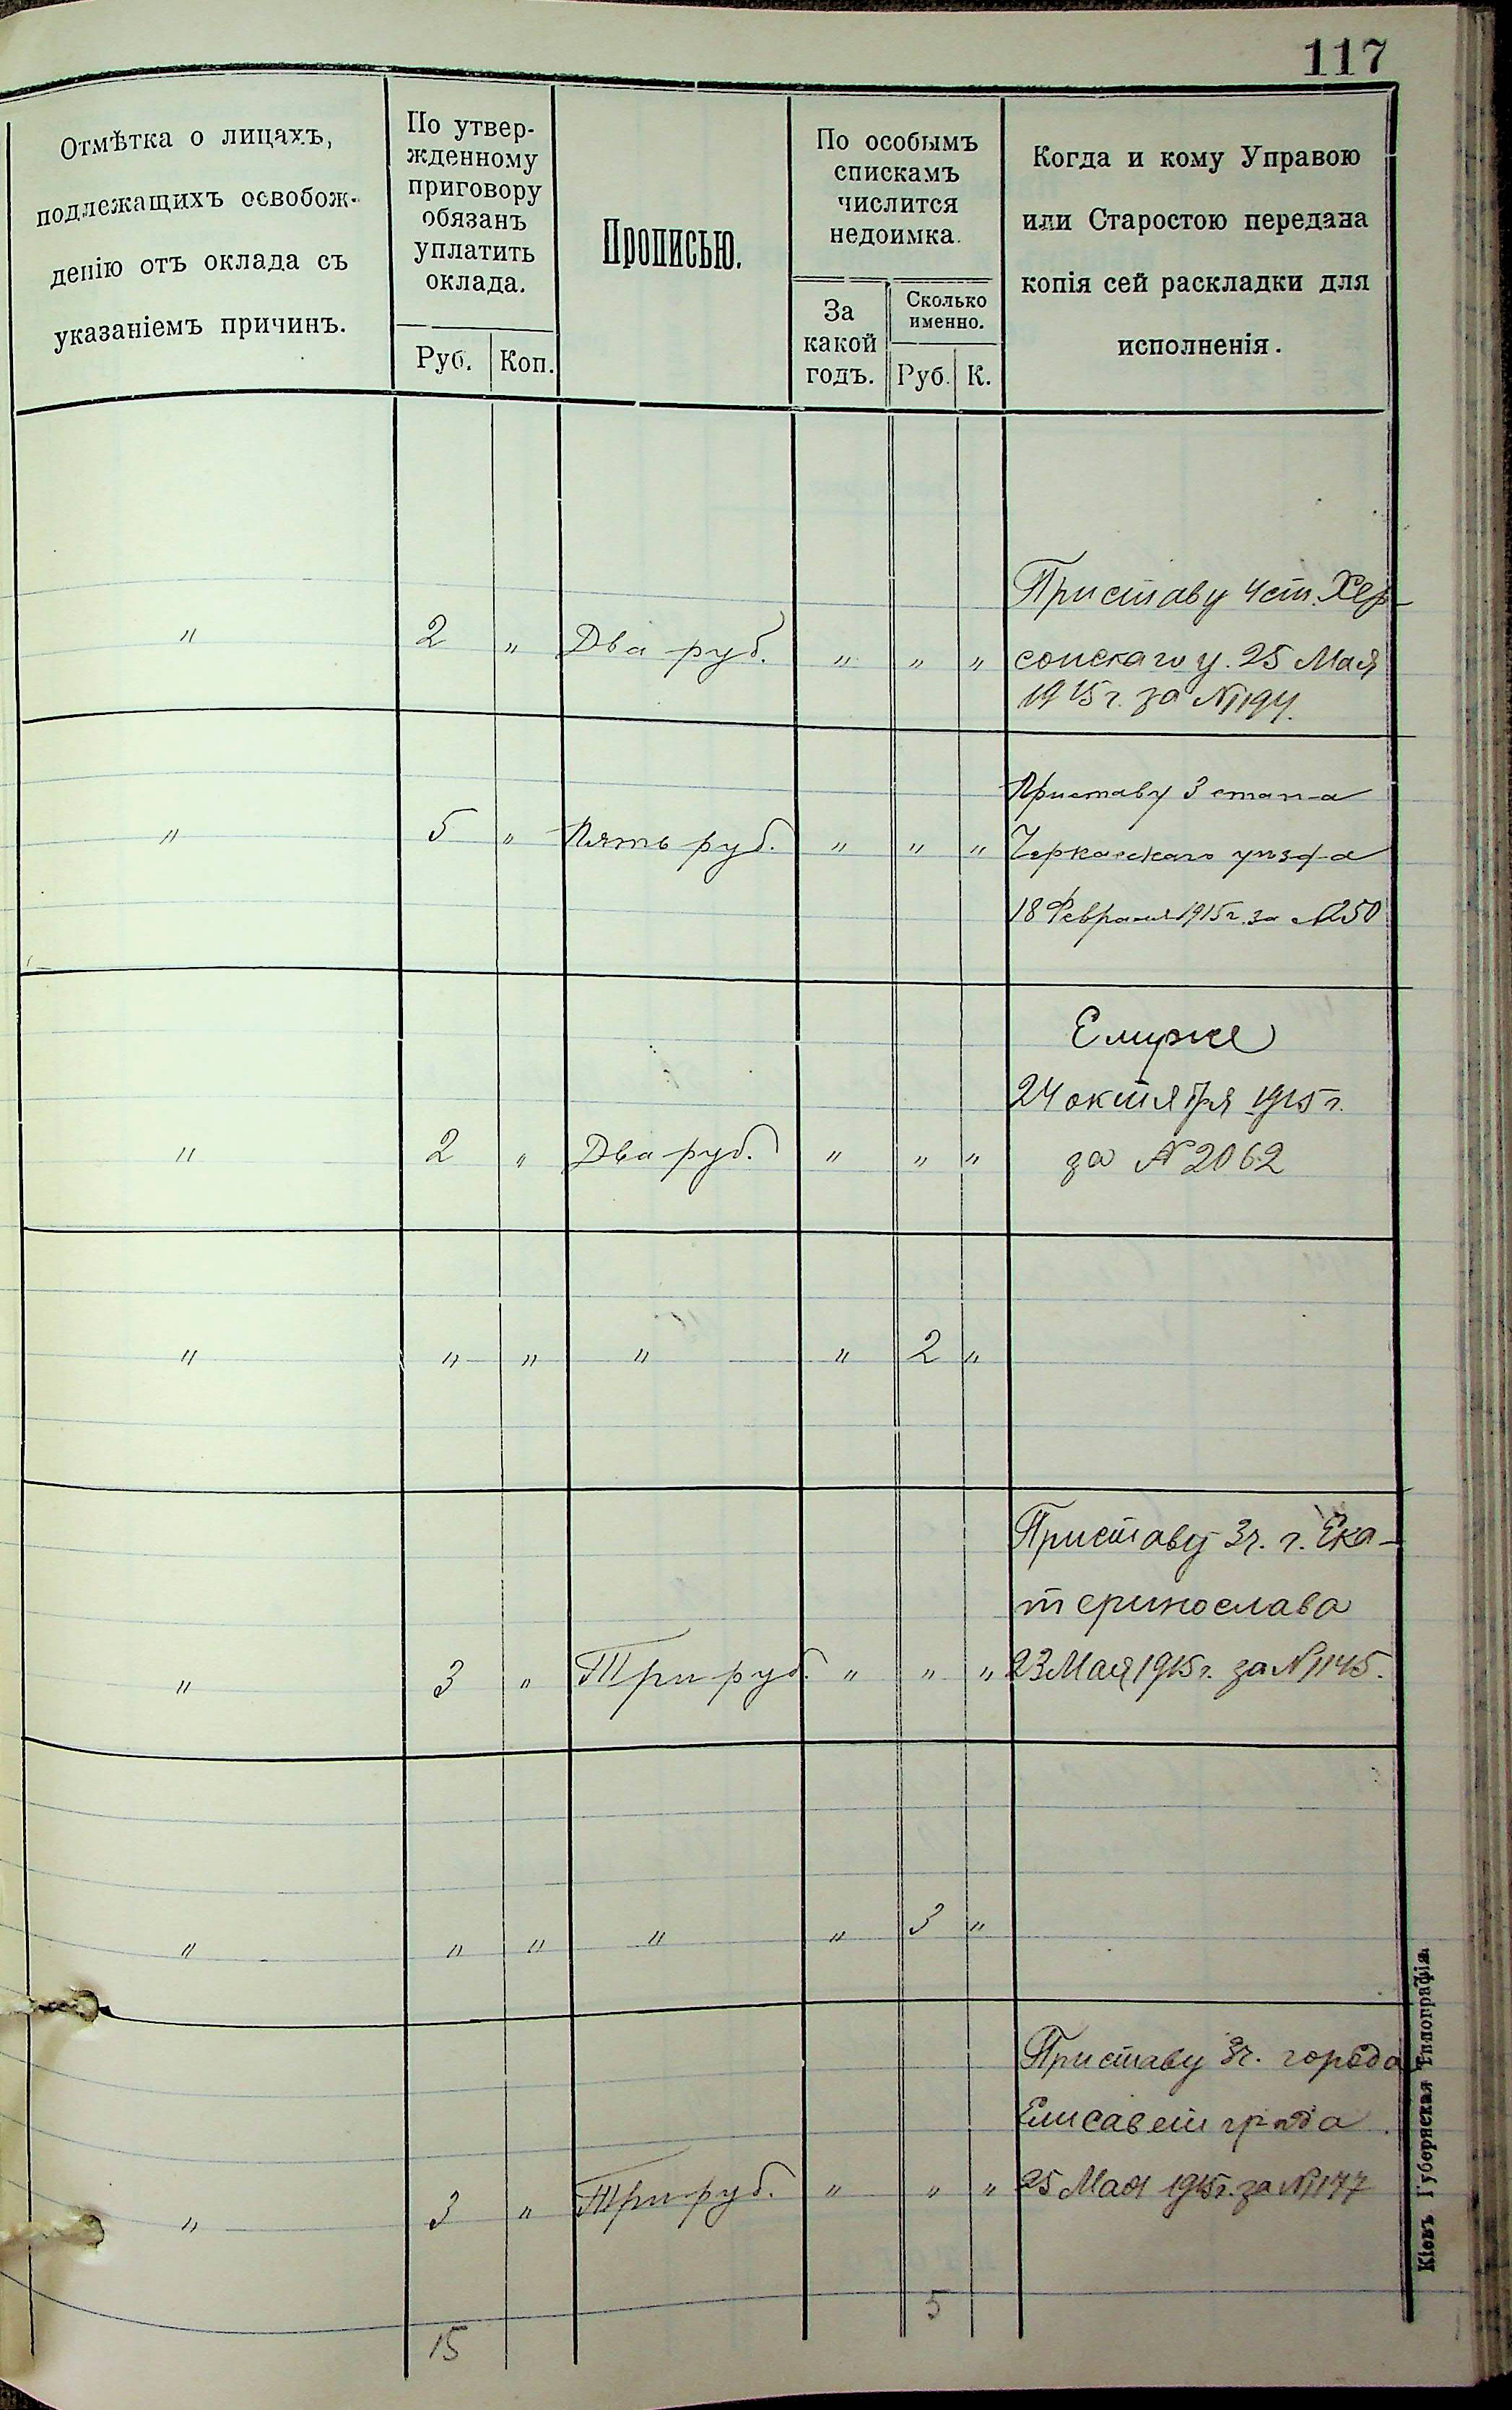 117
Отмѣтка о лицахъ,
подлежащихъ освобож-
денію отъ оклада съ
указаніемъ причинъ.
По утвер-
жденному
приговору
обязанъ
уплатить
оклада.
Руб. Коп.
Прописью.
По особымъ
спискамъ
числится
недоимка.
За
какой
годъ.
Сколько
именно.
Руб. К.
Когда и кому Управою
или Старостою передана
копія сей раскладки для
исполненія.
Приставу 4 ст. Хер-
" 2 " Два руб. " " " сонскаго у. 25 Мая
1915 г. за №1194.
Приставу 3 стан-а
" 5 " Пять руб. " " " Черкасскаго уѣзд-а
18 Февраля 1915 г. за №250
Ему же
24 октября 1915 г.
" 2 " Два руб. " " " за № 2062
" " " " " 2 "
Приставу 3 ч. г. Ека-
теринослава
" 3 " Три руб. " " " 23 Мая 1915 г. за №1145.
" " " " " 3 "
Приставу 3 ч. города
Елисаветграда
" 3 " Три руб. " " " 25 Мая 1915 г. за №1177
15 5
Кіевъ Губернская Типографія.